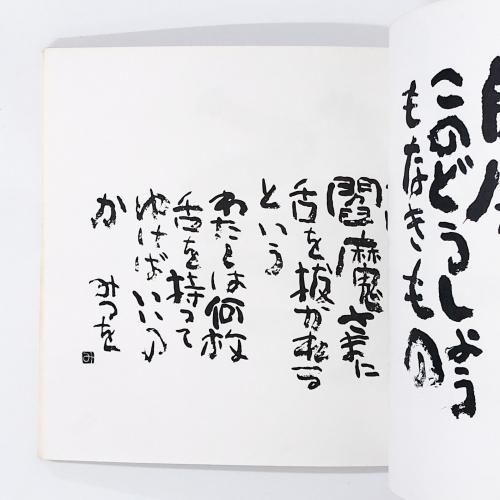 このどうしよう
もなきもの
閻魔さまに
舌を抜かれる
という
わたしは何枚
舌を持って
ゆけばいいの
か
みつを